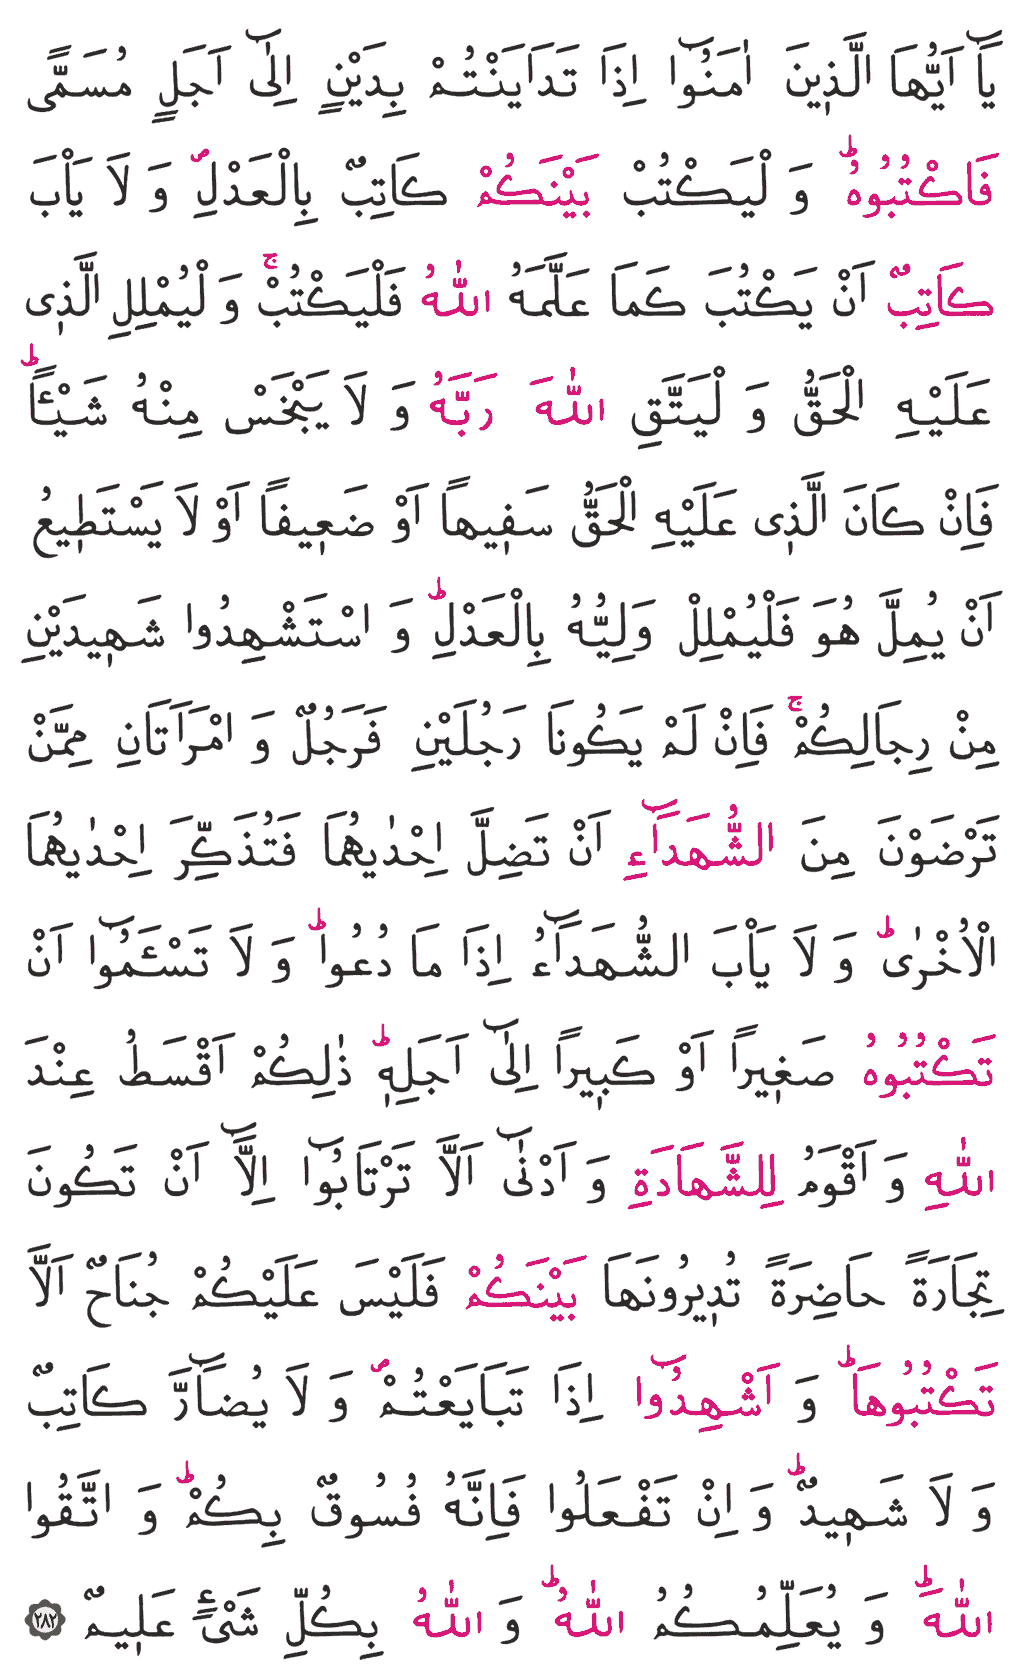 يَآ اَيُّهَا الَّذ۪ينَ اٰمَنُوٓا اِذَا تَدَايَنْتُمْ بِدَيْنٍ اِلٰٓى اَجَلٍ مُسَمًّى
فَاكْتُبُوهُۜ وَ لْيَكْتُبْ بَيْنَكُمْ كَاتِبٌ بِالْعَدْلِۖ وَ لَا يَاْبَ
كَاتِبٌ اَنْ يَكْتُبَ كَمَا عَلَّمَهُ اللّٰهُ فَلْيَكْتُبْۚ وَ لْيُمْلِلِ الَّذ۪ى
عَلَيْهِ الْحَقُّ وَ لْيَتَّقِ اللّٰهَ رَبَّهُ وَ لَا يَبْخَسْ مِنْهُ شَيْـًٔاۜ
فَاِنْ كَانَ الَّذ۪ى عَلَيْهِ الْحَقُّ سَف۪يهاً اَوْ ضَع۪يفاً اَوْ لَا يَسْتَط۪يعُ
اَنْ يُمِلَّ هُوَ فَلْيُمْلِلْ وَلِيُّهُ بِالْعَدْلِۜ وَ اسْتَشْهِدُوا شَه۪يدَيْنِ
مِنْ رِجَالِكُمْۚ فَاِنْ لَمْ يَكُونَا رَجُلَيْنِ فَرَجُلٌ وَ امْرَاَتَانِ مِمَّنْ
تَرْضَوْنَ مِنَ الشُّهَدَآءِ اَنْ تَضِلَّ اِحْدٰيهُمَا فَتُذَكِّرَ اِحْدٰيهُمَا
الْاُخْرٰىۜ وَ لَا يَاْبَ الشُّهَدَآءُ اِذَا مَا دُعُواۜ وَ لَا تَسْـَٔمُوٓا اَنْ
تَكْتُبُوهُ صَغ۪يراً اَوْ كَب۪يراً اِلٰٓى اَجَلِه۪ۜ ذٰلِكُمْ اَقْسَطُ عِنْدَ
اللّٰهِ وَ اَقْوَمُ لِلشَّهَادَةِ وَ اَدْنٰٓى اَلَّا تَرْتَابُوٓا اِلَّآ اَنْ تَكُونَ
تِجَارَةً حَاضِرَةً تُد۪يرُونَهَا بَيْنَكُمْ فَلَيْسَ عَلَيْكُمْ جُنَاحٌ اَلَّا
تَكْتُبُوهَاۜ وَ اَشْهِدُوٓا اِذَا تَبَايَعْتُمْۖ وَ لَا يُضَآرَّ كَاتِبٌ
وَ لَا شَه۪يدٌۜ وَ اِنْ تَفْعَلُوا فَاِنَّهُ فُسُوقٌ بِكُمْۜ وَ اتَّقُوا
اللّٰهَۜ وَ يُعَلِّمُكُمُ اللّٰهُۜ وَ اللّٰهُ بِكُلِّ شَىْءٍ عَل۪يمٌ ٢٨٢